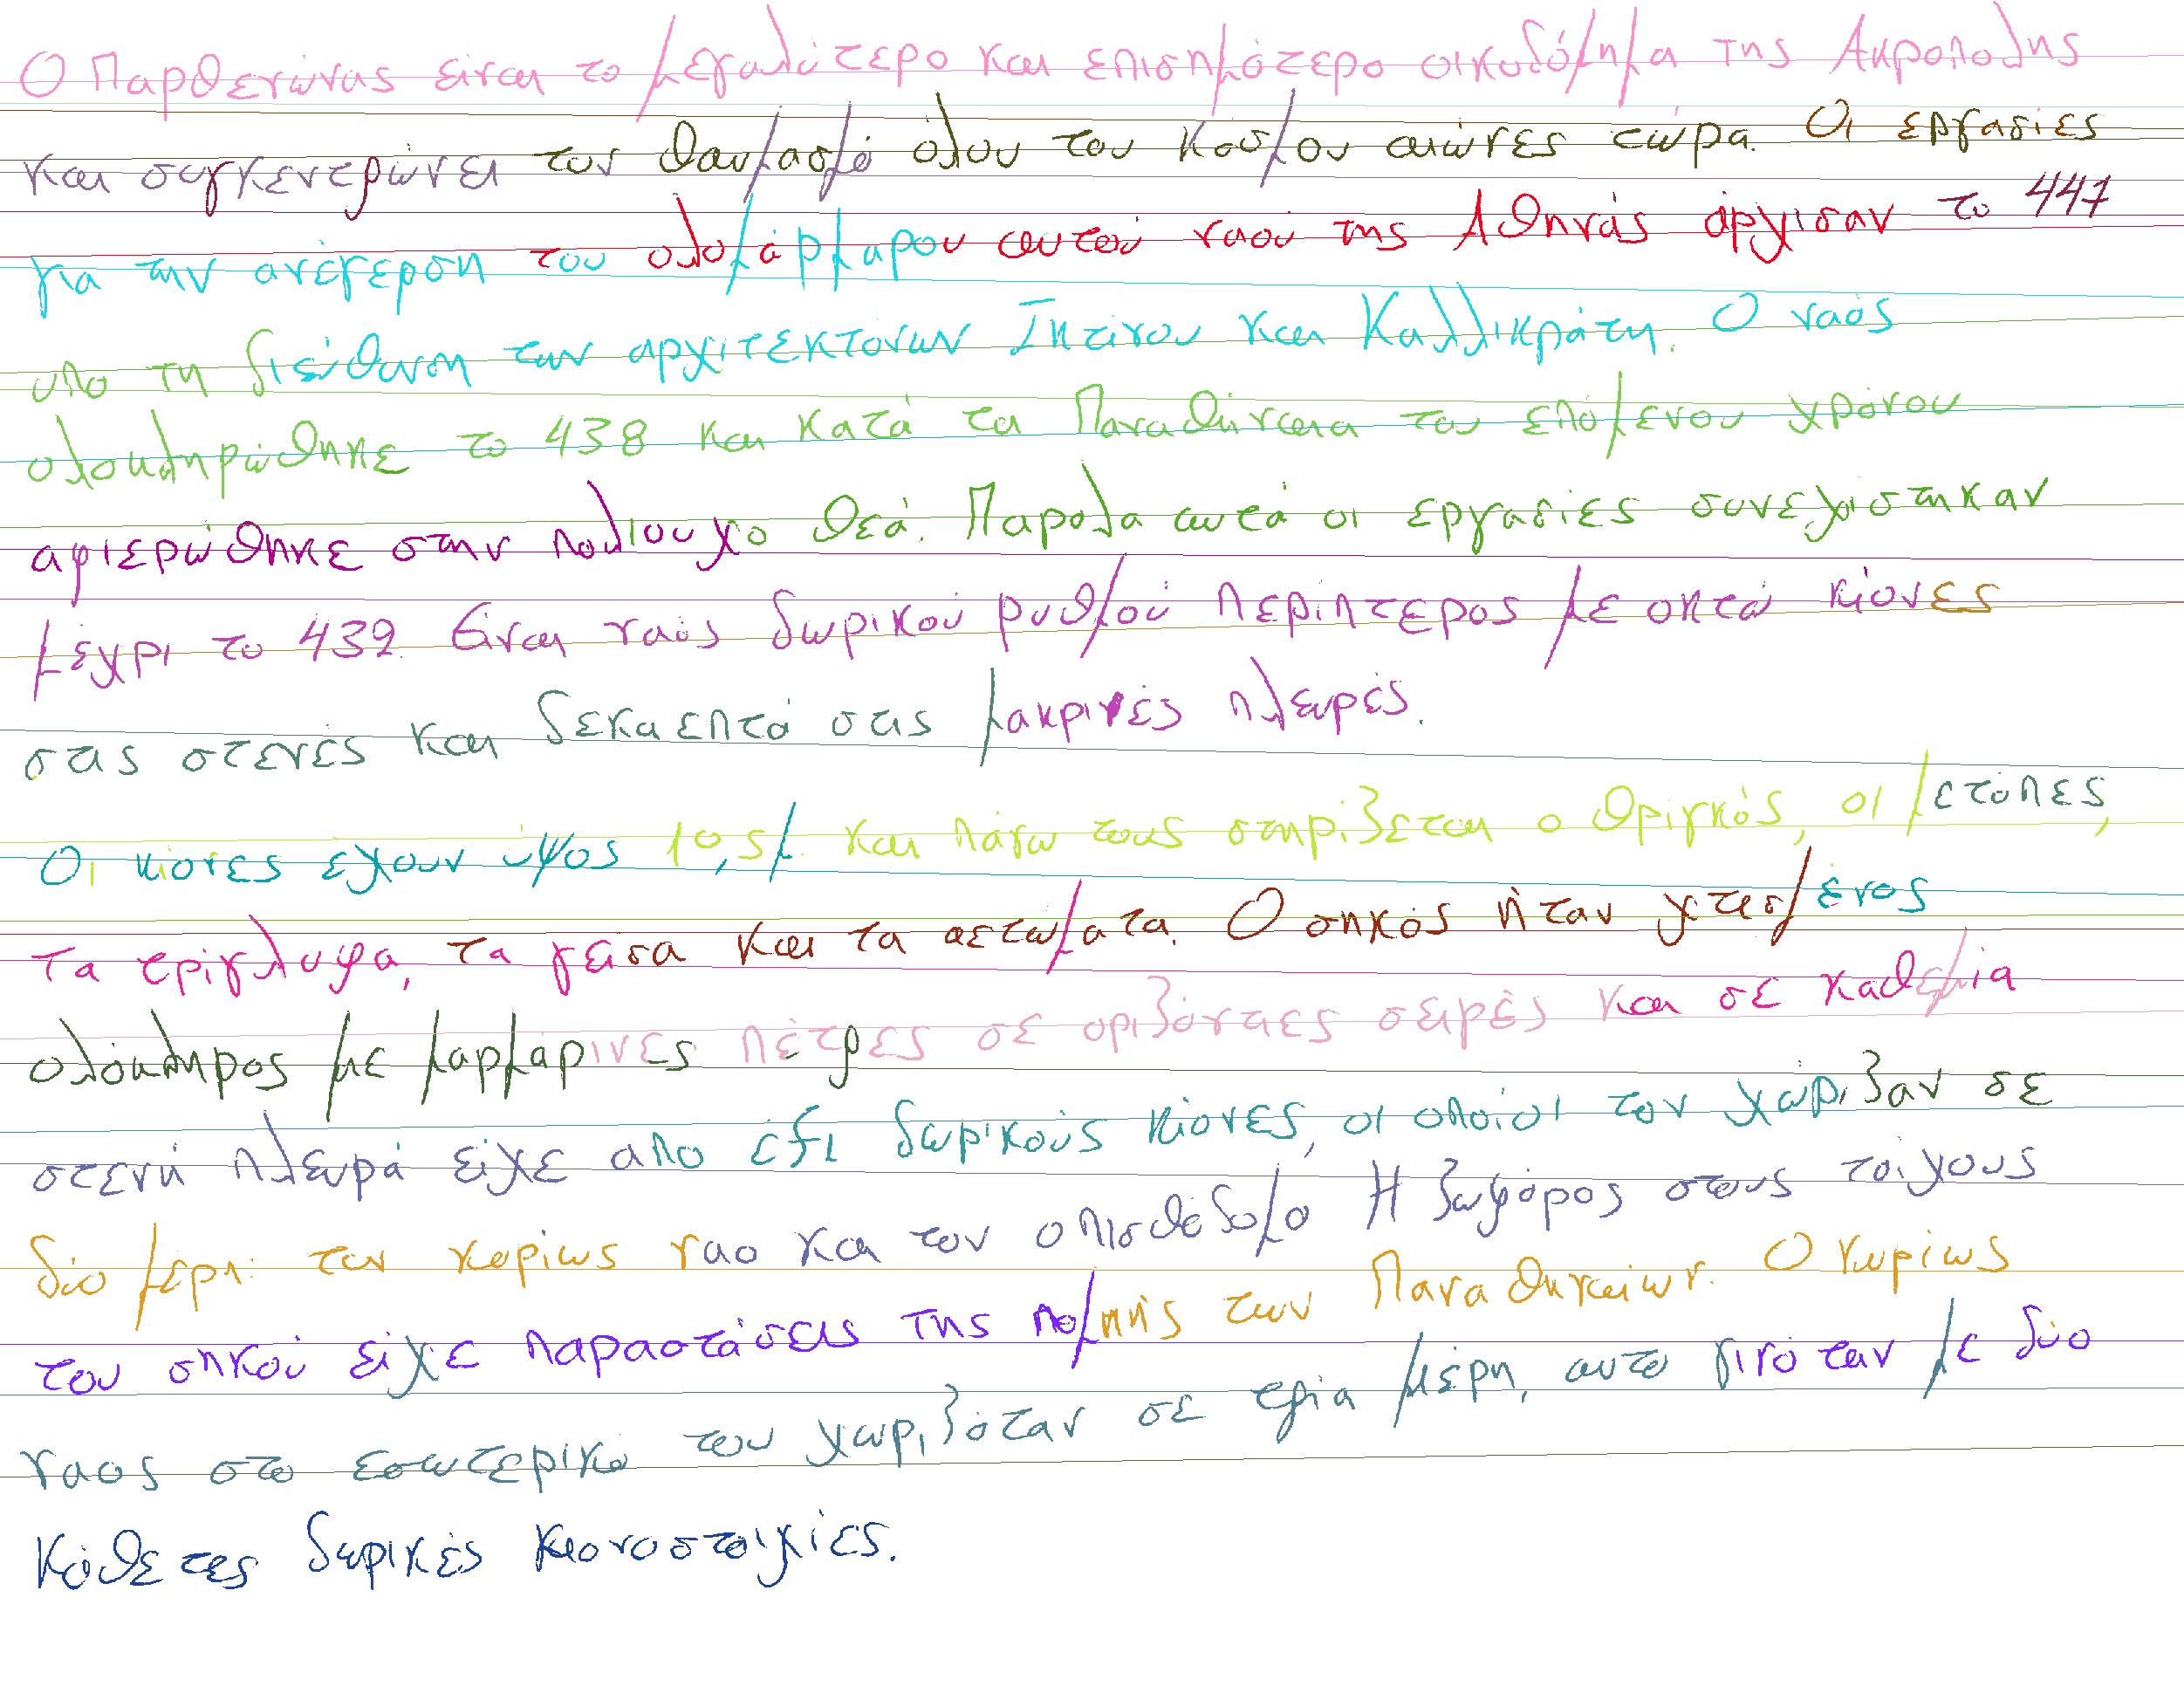 Ο Παρθενώνας είναι το μεγαλύτερο και επισημότερο οικοδόμημα της Ακροπολης
και συγκεντρώνει τον θαυμασμό όλου του κόσμου αιώνες τώρα. Οι εργασίες
για την ανέγερση του ολομάρμαρου αυτού ναού της Αθηνάς άρχισαν το 447
υπο τη διεύθυνση των αρχιτεκτόνων Ικτίνου και Καλλικράτη. Ο ναός
ολοκληρώθηκε το 438 και κατά τα Παναθήναια του επόμενου χρόνου
αφιερώθηκε στην πολιουχο θεά. Παρολα αυτά οι εργασίες συνεχίστηκαν
μέχρι το 432. Είναι ναός δωρικού ρυθμού περίπτερος με οκτώ κίονες
στις στενές και δεκαεπτά στις μακρινές πλευρές.
Οι κίονες έχουν ύψος 10,5μ. και πάνω τους στηρίζεται ο θριγκός, οι μετόπες,
τα τρίγλυφα, τα γείσα και τα αετώματα. Ο σηκός ήταν χτισμένος
ολόκληρος με μαρμάρινες πέτρες σε οριζόντιες σειρές και σε καθεμία
στενή πλευρά είχε απο έξι δωρικούς κίονες, οι οποίοι τον χώριζαν σε
δύο μέρη: τον κυρίως ναο και τον οπισθόδομο Η ζωφόρος στους τοίχους
του σηκού είχε παραστάσεις της πομπής των Παναθηναίων. Ο κυρίως
ναος στο εσωτερικό του χωριζόταν σε τρία μέρη, αυτο γινόταν με δύο
κάθετες δωρικές κιονοστοιχίες.